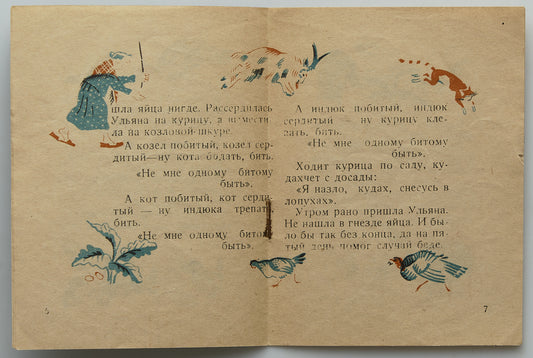 шла яйца нигде. Рассердилась
Ульяна на курицу, а вымести
ла на козловой шкуре.
А козел побитый, козел сер-
дитый—ну кота бодать, бить.
«Не мне одному битому
быть».
А кот побитый, кот серди-
тый — ну индюка трепать,
бить.
«Не мне одному битому
быть».
6
А индюк побитый, индюк
сердитый — ну курицу кле-
вать, бить.
«Не мне одному битому
быть».
Ходит курица по саду, ку-
дахчет с досады:
«Я назло, кудах, снесусь в
лопухах».
Утром рано пришла Ульяна.
Не нашла в гнезде яйца. И бы-
ло бы так без конца, да на пя-
тый день помог случай беде.
7